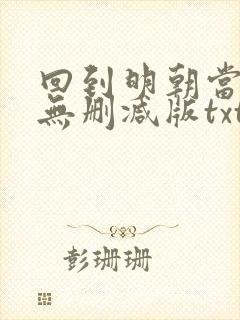 回到明朝當
無刪減版txt
彭珊珊